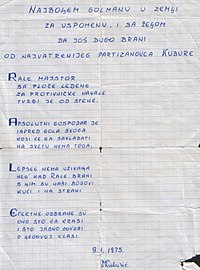 NAJBOLJEM GOLMANU U ZEMLJI
ZA USPOMENU, I SA ŽELJOM
DA JOŠ DUGO BRANI
OD NAJVATRENIJEG PARTIZANOVCA KUBURE
RALE MAJSTOR
SA PLOČE LEDENE
ZA PROTIVNIČKE NAVALE
TVRĐI JE OD STENE.
APSOLUTNI GOSPODAR JE
ISPRED GOLA SVOGA
KOSI ĆE GA SAVLADATI
NA SVETU NEMA TOGA.
LEPŠEG NEMA UŽIVANJA
NEG' KAD RALE BRANI
S NIM SU NAŠI BODOVI
KUĆI I NA STRANI
EFEKTNE ODBRANE SU
ONO ŠTO GA KRASI
I ŠTO JASNO GOVORI
O NJEGOVOJ KLASI.
9.1.1975.